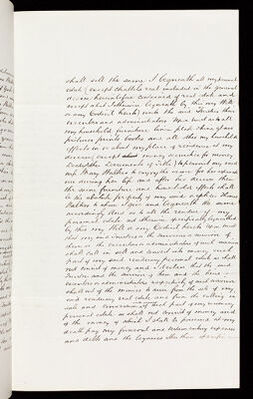 shall sell the same I bequeath all my personal
estate (except chattels real included in the general
devise hereinbefore contained of real estate and
except what I otherwise bequeath by this my Will
or any Codicil hereto) unto the said Trustees their
executors and administrators Upon trust as to all
my household furniture linen plate china glass
pictures prints books and all other my household
effects in or about my place of residence at my
decease except money or securities for money
to
and during her life and after her decease then
the same furniture and household effects shall
be
Walker to whom I give and bequeath the same
accordingly And as to all the residue of my
personal estate not otherwise specifically bequeathed
by this my Will or any Codicil hereto Upon trust
that my said trustees or the survivors or survivor of
them or the executors or administrators of such survivor
shall call in sell and convert into money such
part of my said residuary personal estate as shall
not consist of money and I declare that the said
Trustees and the survivors of them and the
executors or administrators respectively of such survivor
shall out of the moneys to arise from the sale of my
said residuary real estate and from the calling in
sale and conversion of such part of my residuary
personal estate as shall not consist of money and
of the money of which I shall be possessed at my
death pay my funeral and testamentary expenses
and debts and the legacies